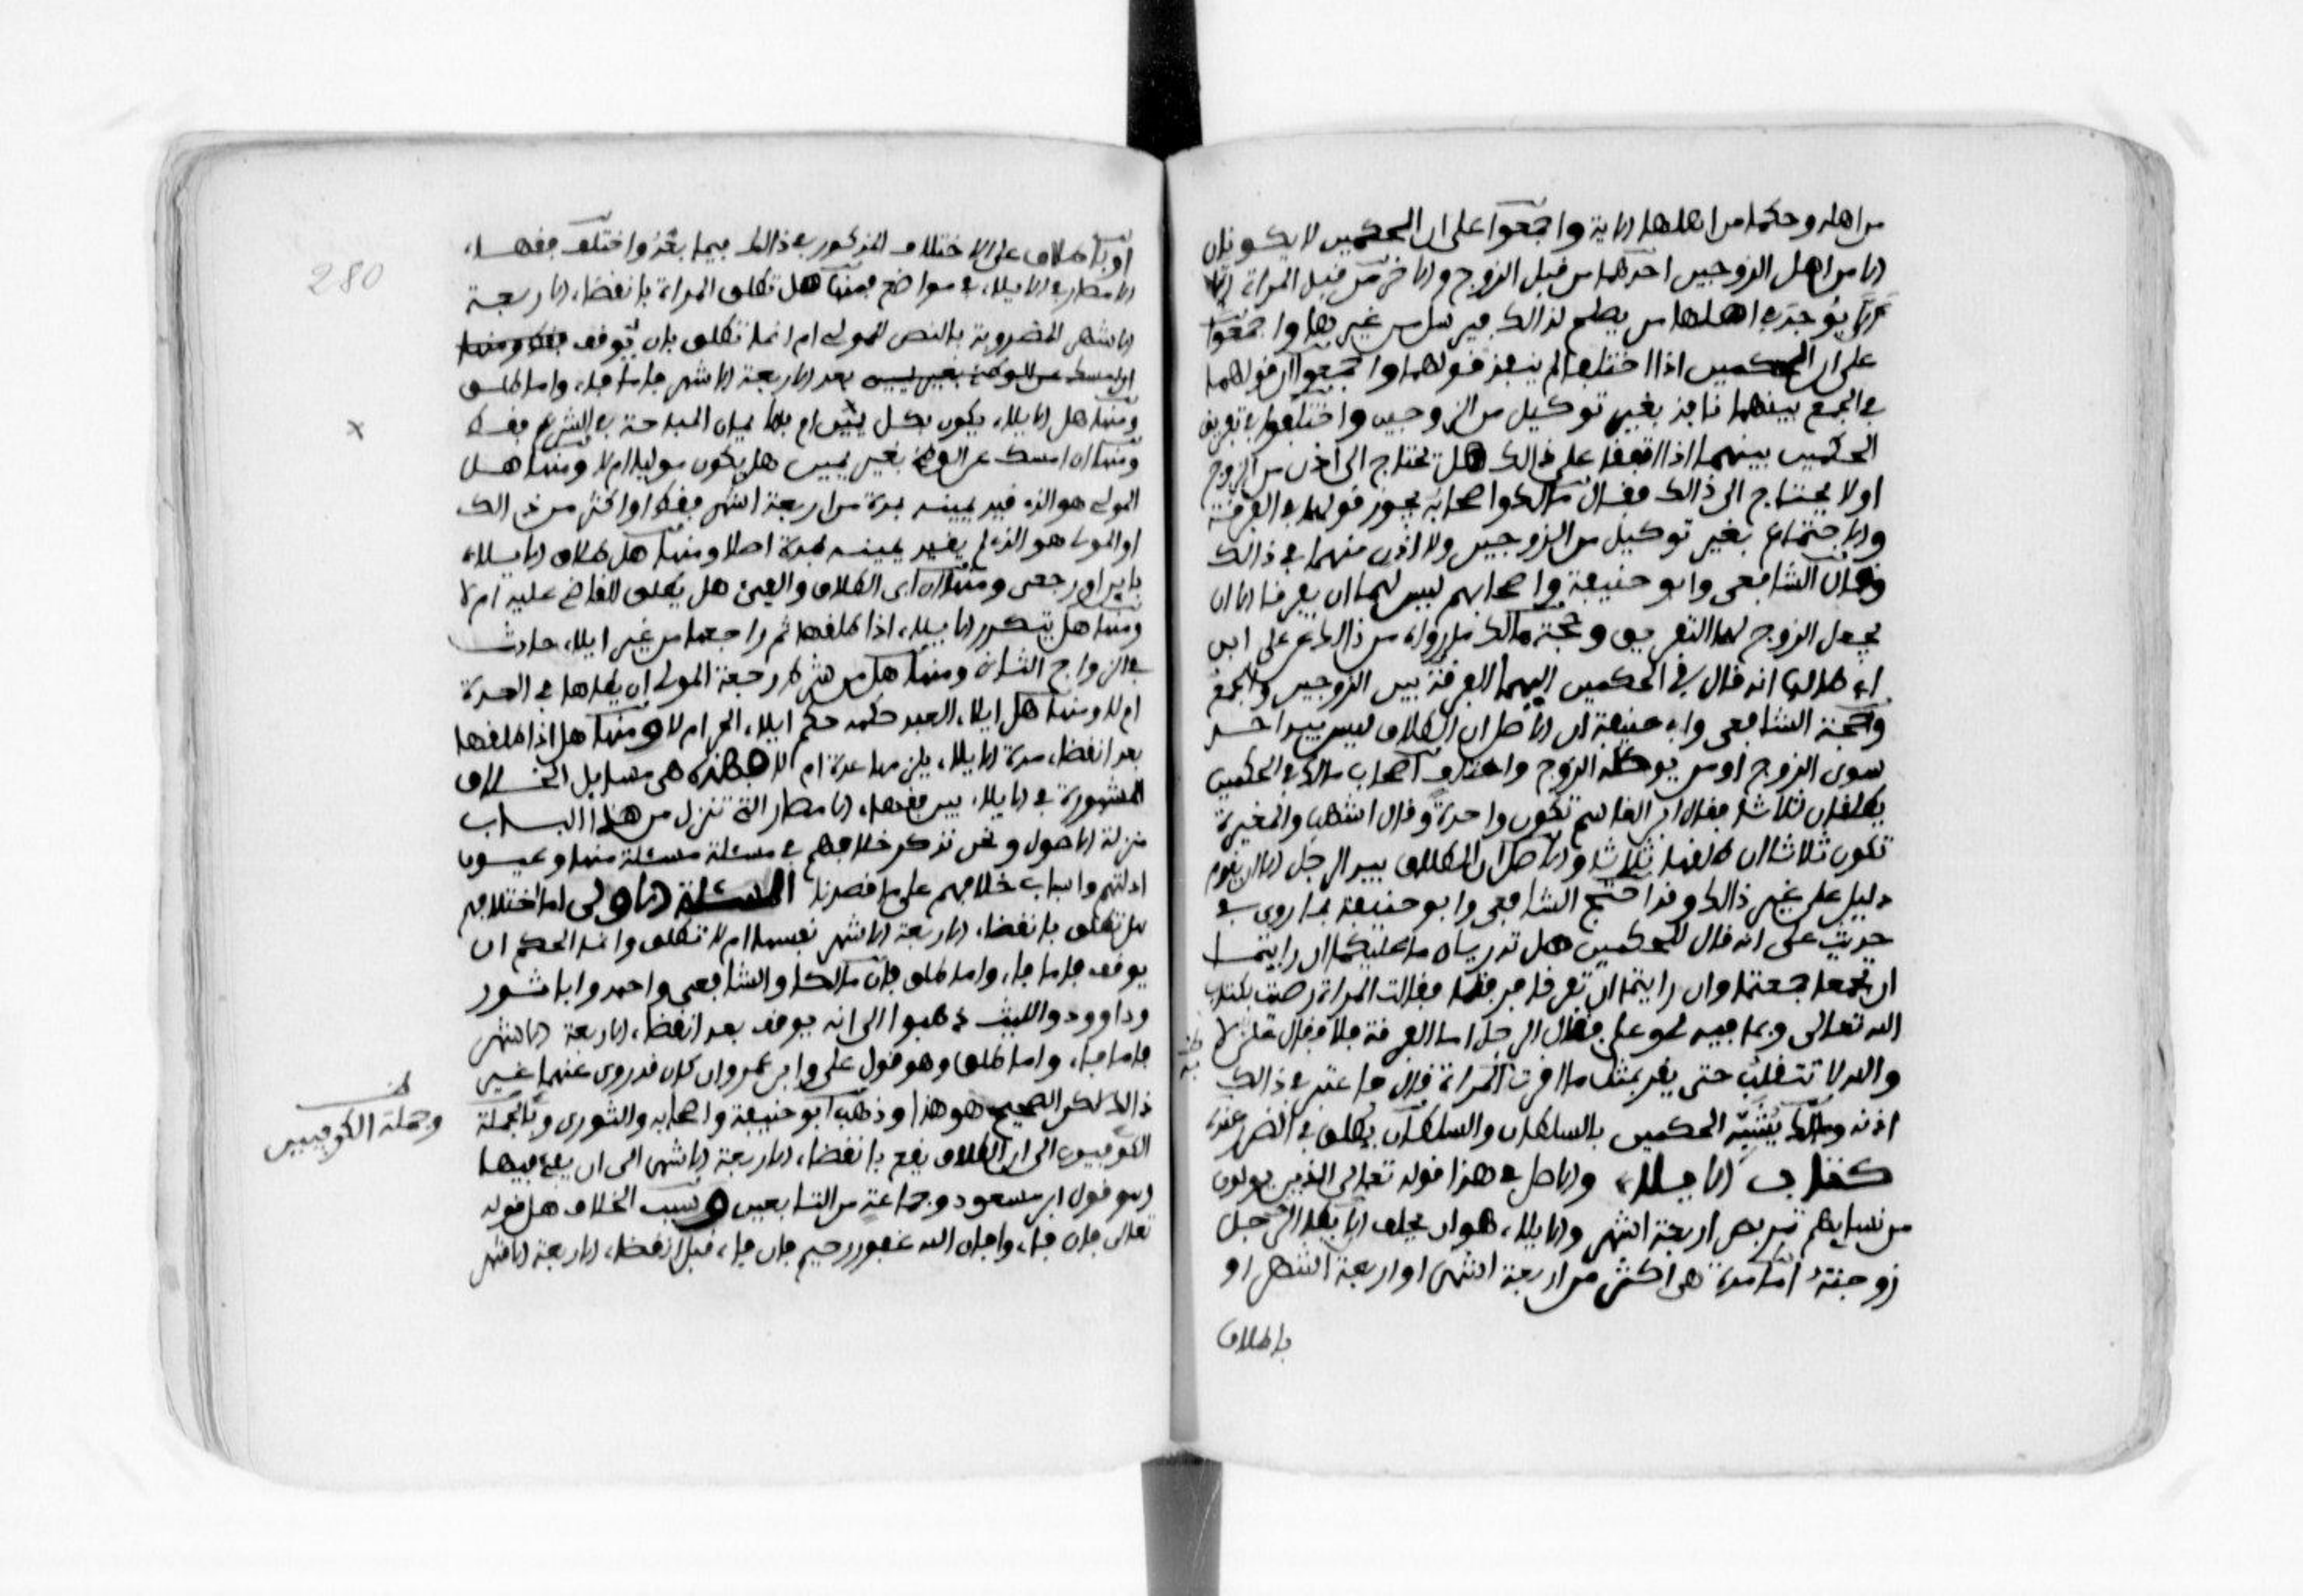 من اهله وحكما من اهلها الاية واجمعوا على ان الحكمين لا يكونان
الا من اهل الزوجين احدهما من قبل الزوج والاخر من قبل المراة الا
ان لا يوجد في اهلهما من يصلح لذالك فيرسل من غيرهما واجمعوا
على ان الحكمين اذا اختلفا لم ينفذ قولهما واجمعوا ان قولهما
في الجمع بينهما نافذ بغير توكيل من الزوجين واختلفوا في تفريق
الحكمين بينهما اذا اتفقا على ذالك هل تحتاج الى اذن من الزوج
او لا يحتاج الى ذالك فقال مالك واصحابه يجوز قولهما في الفرقة
والاجتماع بغير توكيل من الزوجين ولا اذن منهما في ذالك
وقال الشافعي وابو حنيفة واصحابهم ليس لهما ان يفرقا الا ان
يجعل الزوج لهما التفريق وحجة مالك ما رواه من ذالك عن علي ابن
ابي طالب انه قال في الحكمين اليهما الفرقة بين الزوجين والجمع
وحجة الشافعي وابي حنيفة ان الاصل ان الطلاق ليس بيد احد
سوى الزوج او من يوكله الزوج واختلف اصحاب مالك في الحكمين
يطلقان ثلاثا فقال ابن القاسم تكون واحدة وقال اشهب والمغيرة
تكون ثلاثا ان طلقها ثلاثا والاصل ان الطلاق بيد الرجل الا ان يقوم
دليل على غير ذالك وقد احتج الشافعي وابو حنيفة بما روي في
حديث علي انه قال للحكمين هل تدريان ما عليكما ان رايتما
ان تجمعا جمعتما وان رايتما ان تفرقا فرقتما فقالت المراة رضيت بكتاب
الله تعالى وبما فيه لي وعلي فقال الرجل اما الفرقة فلا فقال علي لا
والله لا تنقلب حتى يقر بمثل ما اقرت المراة قال فاعتبر في ذالك
اذنه ومالك يشبه الحكمين بالسلطان والسلطان يطلق في الضرر عنده
كتاب الايلاء والاصل في هذا قوله تعالى للذين يولون
من نسايهم تربص اربعة اشهر والايلاء هو ان يحلف الا يطا الرجل
زوجته اما مدة هي اكثر من اربعة اشهر او اربعة اشهر او
باطلاق
280
او باطلاق على الاختلاف المذكور في ذالك فيما بعد واختلف فقهاء
الامصار في الايلاء في مواضع فمنها هل تطلق المراة بانقضاء الاربعة
الاشهر المضروبة بالنص للمولي ام انما تطلق بان يوقف
بعد الاربعة الاشهر فاما فاء واما طلق
ومنها هل الايلاء يكون بكل يمين ام بالايمان المباحة في الشرع فقط
ومنها ان امسك عن الوطئ بغير يمين هل يكون موليا ام لا ومنها هل
المولي هو الذي قيد يمينه بمدة من اربعة اشهر فقط او اكثر من ذالك
او المولي هو الذي لم يقيد يمينه بمدة اصلا ومنها هل طلاق الايلاء
باين او رجعي ومنها ان ابى الطلاق والفيئ هل يطلق القاضي عليه ام لا
ومنها هل يتكرر الايلاء اذا طلقها ثم راجعها من غير ايلاء حادث
في الزواج الثاني ومنها هل من شرط رجعة المولي ان يطاها في العدة
ام لا ومنها هل ايلاء العبد حكمه حكم ايلاء الحر ام لا ومنها هل اذا طلقها
بعد انقضاء مدة الايلاء يلزمها عدة ام لا فهذه هي مسايل الخلاف
المشهورة في الايلاء بين فقهاء الامصار التي تنزل من هذا الباب
منزلة الاصول ونحن نذكر خلافهم في مسئلة مسئلة منها وعيون
ادلتهم واسباب خلافهم على ما قصدنا المسئلة الاولى اما اختلافهم
هل تطلق بانقضاء الاربعة الاشهر نفسها ام لا تطلق وانما الحكم ان
يوقف فاما فاء واما طلق فان مالكا والشافعي واحمد وابا ثور
وداوود والليث ذهبوا الى انه يوقف بعد انقضاء الاربعة الاشهر
فاما فاء واما طلق وهو قول علي وابن عمر وان كان قد روي عنهما غير
ذالك لكن الصحيح هو هذا وذهب ابو حنيفة واصحابه والثوري وبالجملة
الكوفيون الى ان الطلاق يقع بانقضاء الاربعة الاشهر الى ان يفيء فيها
وهو قول ابن مسعود وجماعة من التابعين وسبب الخلاف هل قوله
تعالى فان فاءوا فان الله غفور رحيم فان فاء قبل انقضاء الاربعة الاشهر
وجملة الكوفيين